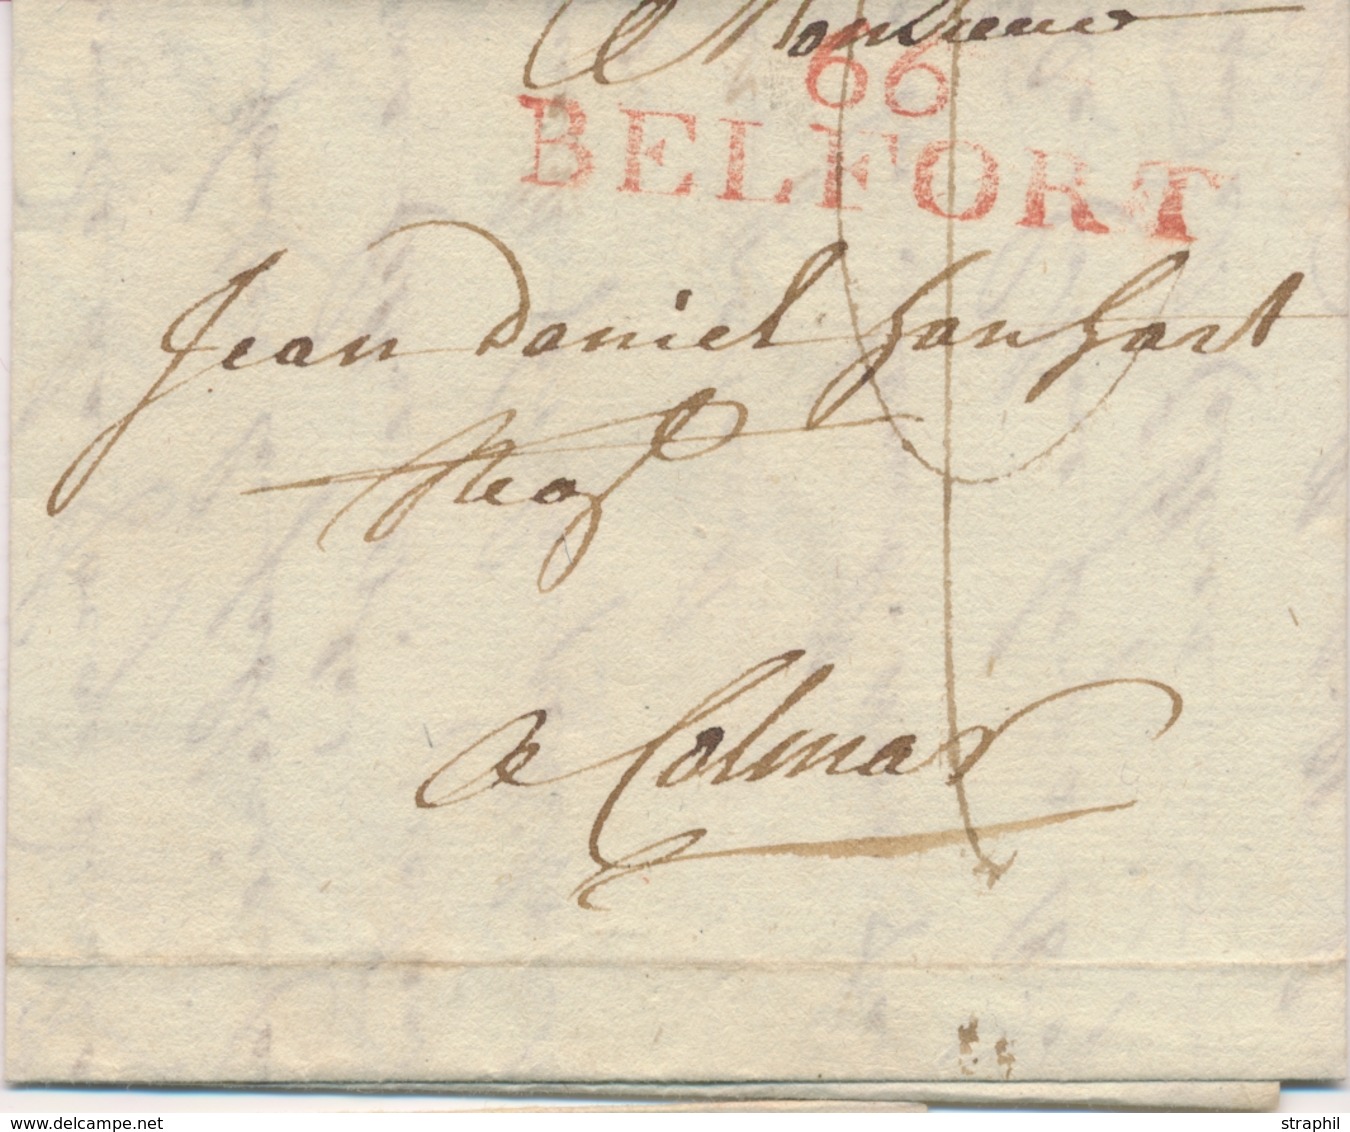 Monsieur
66
BELFORT
Jean Daniel Hanhart
Neg
a Colmar
www.delcampe.net
straphil